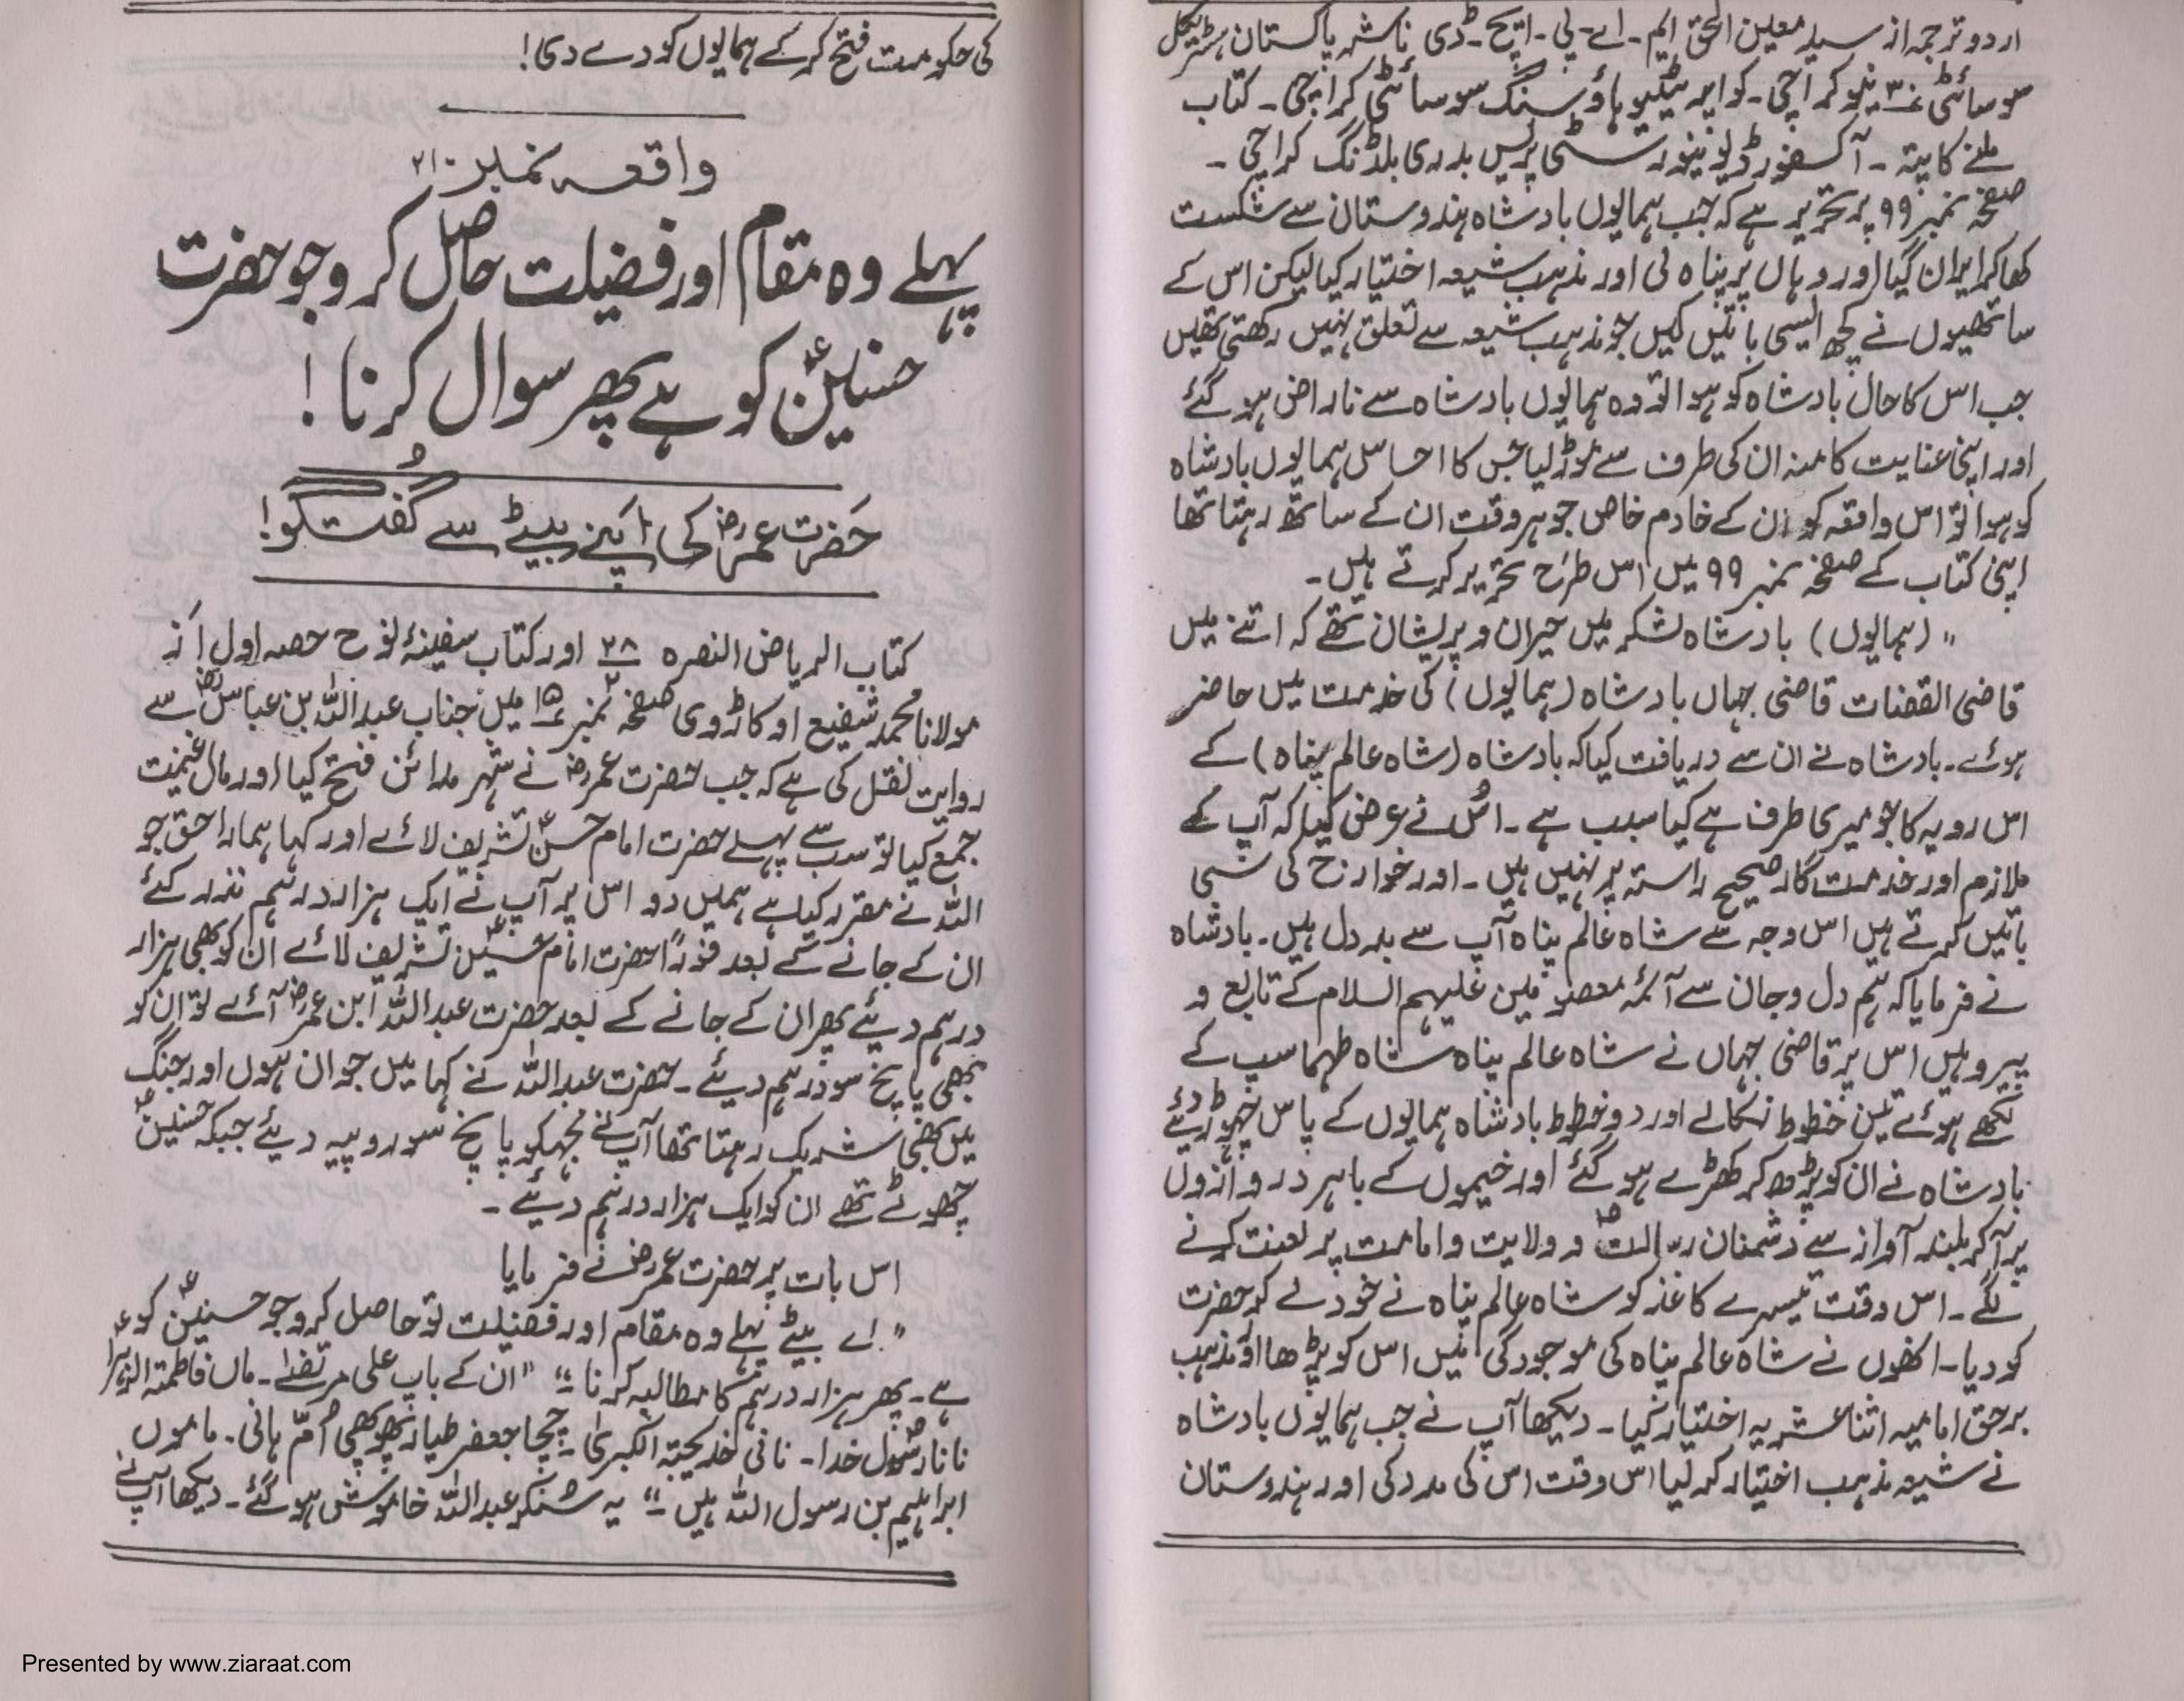 اردو ترجمہ از سید معین الحق ایم۔ اے۔ پی۔ ایچ۔ ڈی ناشر پاکستان ہسٹریکل
سوسائٹی ۳۰ نیو کراچی۔ کواپریٹیو ہاؤسنگ سوسائٹی کراچی۔ کتاب
ملنے کا پتہ۔ آکسفورڈ یونیورسٹی پریس بدری بلڈنگ کراچی۔
صفحہ نمبر ۹۹ پر تحریر ہے کہ جب ہمایوں بادشاہ ہندوستان سے شکست
کھا کر ایران گیا اور وہاں پر پناہ لی اور مذہب شیعہ اختیار کیا لیکن اس کے
ساتھیوں نے کچھ ایسی باتیں کیں جو مذہب شیعہ سے تعلق نہیں رکھتی تھیں
جب اس کا حال بادشاہ کو ہوا تو وہ ہمایوں بادشاہ سے ناراض ہو گئے
اور اپنی عنایت کا منہ ان کی طرف سے موڑ لیا جس کا احساس ہمایوں بادشاہ
کو ہوا تو اس واقعہ کو ان کے خادم خاص جو ہر وقت ان کے ساتھ رہتا تھا
اپنی کتاب کے صفحہ نمبر ۹۹ میں اس طرح تحریر کرتے ہیں۔
" (ہمایوں) بادشاہ لشکر میں حیران و پریشان تھے کہ اتنے میں
قاضی القضات قاضی جہاں بادشاہ (ہمایوں) کی خدمت میں حاضر
ہوئے۔ بادشاہ نے ان سے دریافت کیا کہ بادشاہ (شاہ عالم پناہ) کے
اس رویہ کا جو میری طرف ہے کیا سبب ہے۔ اس نے عرض کیا کہ آپ کے
ملازم اور خدمت گار صحیح راستہ پر نہیں ہیں۔ اور خوارزح کی سی
باتیں کرتے ہیں اس وجہ سے شاہ عالم پناہ آپ سے بد دل ہیں۔ بادشاہ
نے فرمایا کہ ہم دل و جان سے آئمہ معصومین علیہم السلام کے تابع و
پیرو ہیں اس پر قاضی جہاں نے شاہ عالم پناہ شاہ طہماسپ کے
لکھے ہوئے تین خطوط نکالے اور دو خطوط بادشاہ ہمایوں کے پاس چھوڑ دیئے
بادشاہ نے ان کو پڑھ کر کھڑے ہو گئے اور خیموں کے باہر دروازوں
پر آکر بلند آواز سے دشمنان رسالتؐ و ولایت و امامت پر لعنت کرنے
لگے۔ اس وقت تیسرے کاغذ کو شاہ عالم پناہ نے خود لے کر حضرت
کو دیا۔ انھوں نے شاہ عالم پناہ کی موجودگی میں اس کو پڑھا اور مذہب
برحق امامیہ اثنا عشریہ اختیار کیا۔ دیکھا آپ نے جب ہمایوں بادشاہ
نے شیعہ مذہب اختیار کر لیا اس وقت اس کی مدد کی اور ہندوستان
کی حکومت فتح کر کے ہمایوں کو دے دی!
واقعہ نمبر ۲۱۰
پہلے وہ مقام اور فضیلت حاصل کرو جو حضرت
حسنینؑ کو ہے پھر سوال کرنا!
حضرت عمرؓ کی اپنے بیٹے سے گفتگو!
کتاب الریاض النضرہ ۲۸/۲ اور کتاب سفینۂ نوح حصہ اول از
مولانا محمد شفیع اوکاڑوی صفحہ نمبر ۱۵ میں جناب عبداللہ بن عباسؓ سے
روایت نقل کی ہے کہ جب حضرت عمرؓ نے شہر مدائن فتح کیا اور مال غنیمت
جمع کیا تو سب سے پہلے حضرت امام حسنؑ تشریف لائے اور کہا ہمارا حق جو
اللہ نے مقرر کیا ہے ہمیں دو اس پر آپ نے ایک ہزار درہم نذر کئے
ان کے جانے کے بعد فوراً حضرت امام حسینؑ تشریف لائے ان کو بھی ہزار
درہم دیئے پھر ان کے جانے کے بعد حضرت عبداللہ ابن عمرؓ آئے تو ان کو
بھی پانچ سو درہم دیئے۔ حضرت عبداللہ نے کہا میں جوان ہوں اور جنگ
میں بھی شریک رہتا تھا آپ نے مجھکو پانچ سو روپیہ دیئے جبکہ حسنینؑ
چھوٹے تھے ان کو ایک ہزار درہم دیئے۔
اس بات پر حضرت عمرؓ نے فرمایا
" اے بیٹے پہلے وہ مقام اور فضیلت تو حاصل کرو جو حسنینؑ کو
ہے۔ پھر ہزار درہم کا مطالبہ کرنا۔" "ان کے باپ علی مرتضٰے۔ ماں فاطمتہ الزہرا
نانا رسولؐ خدا۔ نانی خدیجتہ الکبریٰ۔ چچا جعفر طیار پھوپھی اُمّ ہانی۔ ماموں
ابراہیم بن رسول اللہ ہیں۔" یہ سنکر عبداللہ خاموش ہو گئے۔ دیکھا آپ نے
Presented by www.ziaraat.com